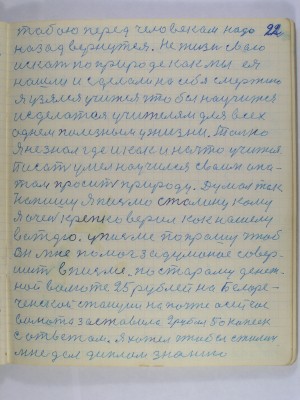 22
тобою перед человеком надо
назад вернутся. Не тизы сваго
искат по природе как мы ея
нашли и сделали на себя смертию
Я узялся учится что бы научится
и сделатся учителям для всех
однем полезным у жизни. Толко
я не знал где и как и на что учится
писат умел научился своим опы-
там просит природу. Думал так
напишу я писмо сталину кому
я очен крепко верил как нашему
вождю. у писме попрашу чтоб
он мне помог задуманое совер-
шит в писме. по старому денеж-
ной валюте 25 рублей на Белоре-
ченской станции на почте
валюта заставила 3 рубля 50 копеек
с ответам. Я хотел чтобы сталин
мне дал диплом знанию